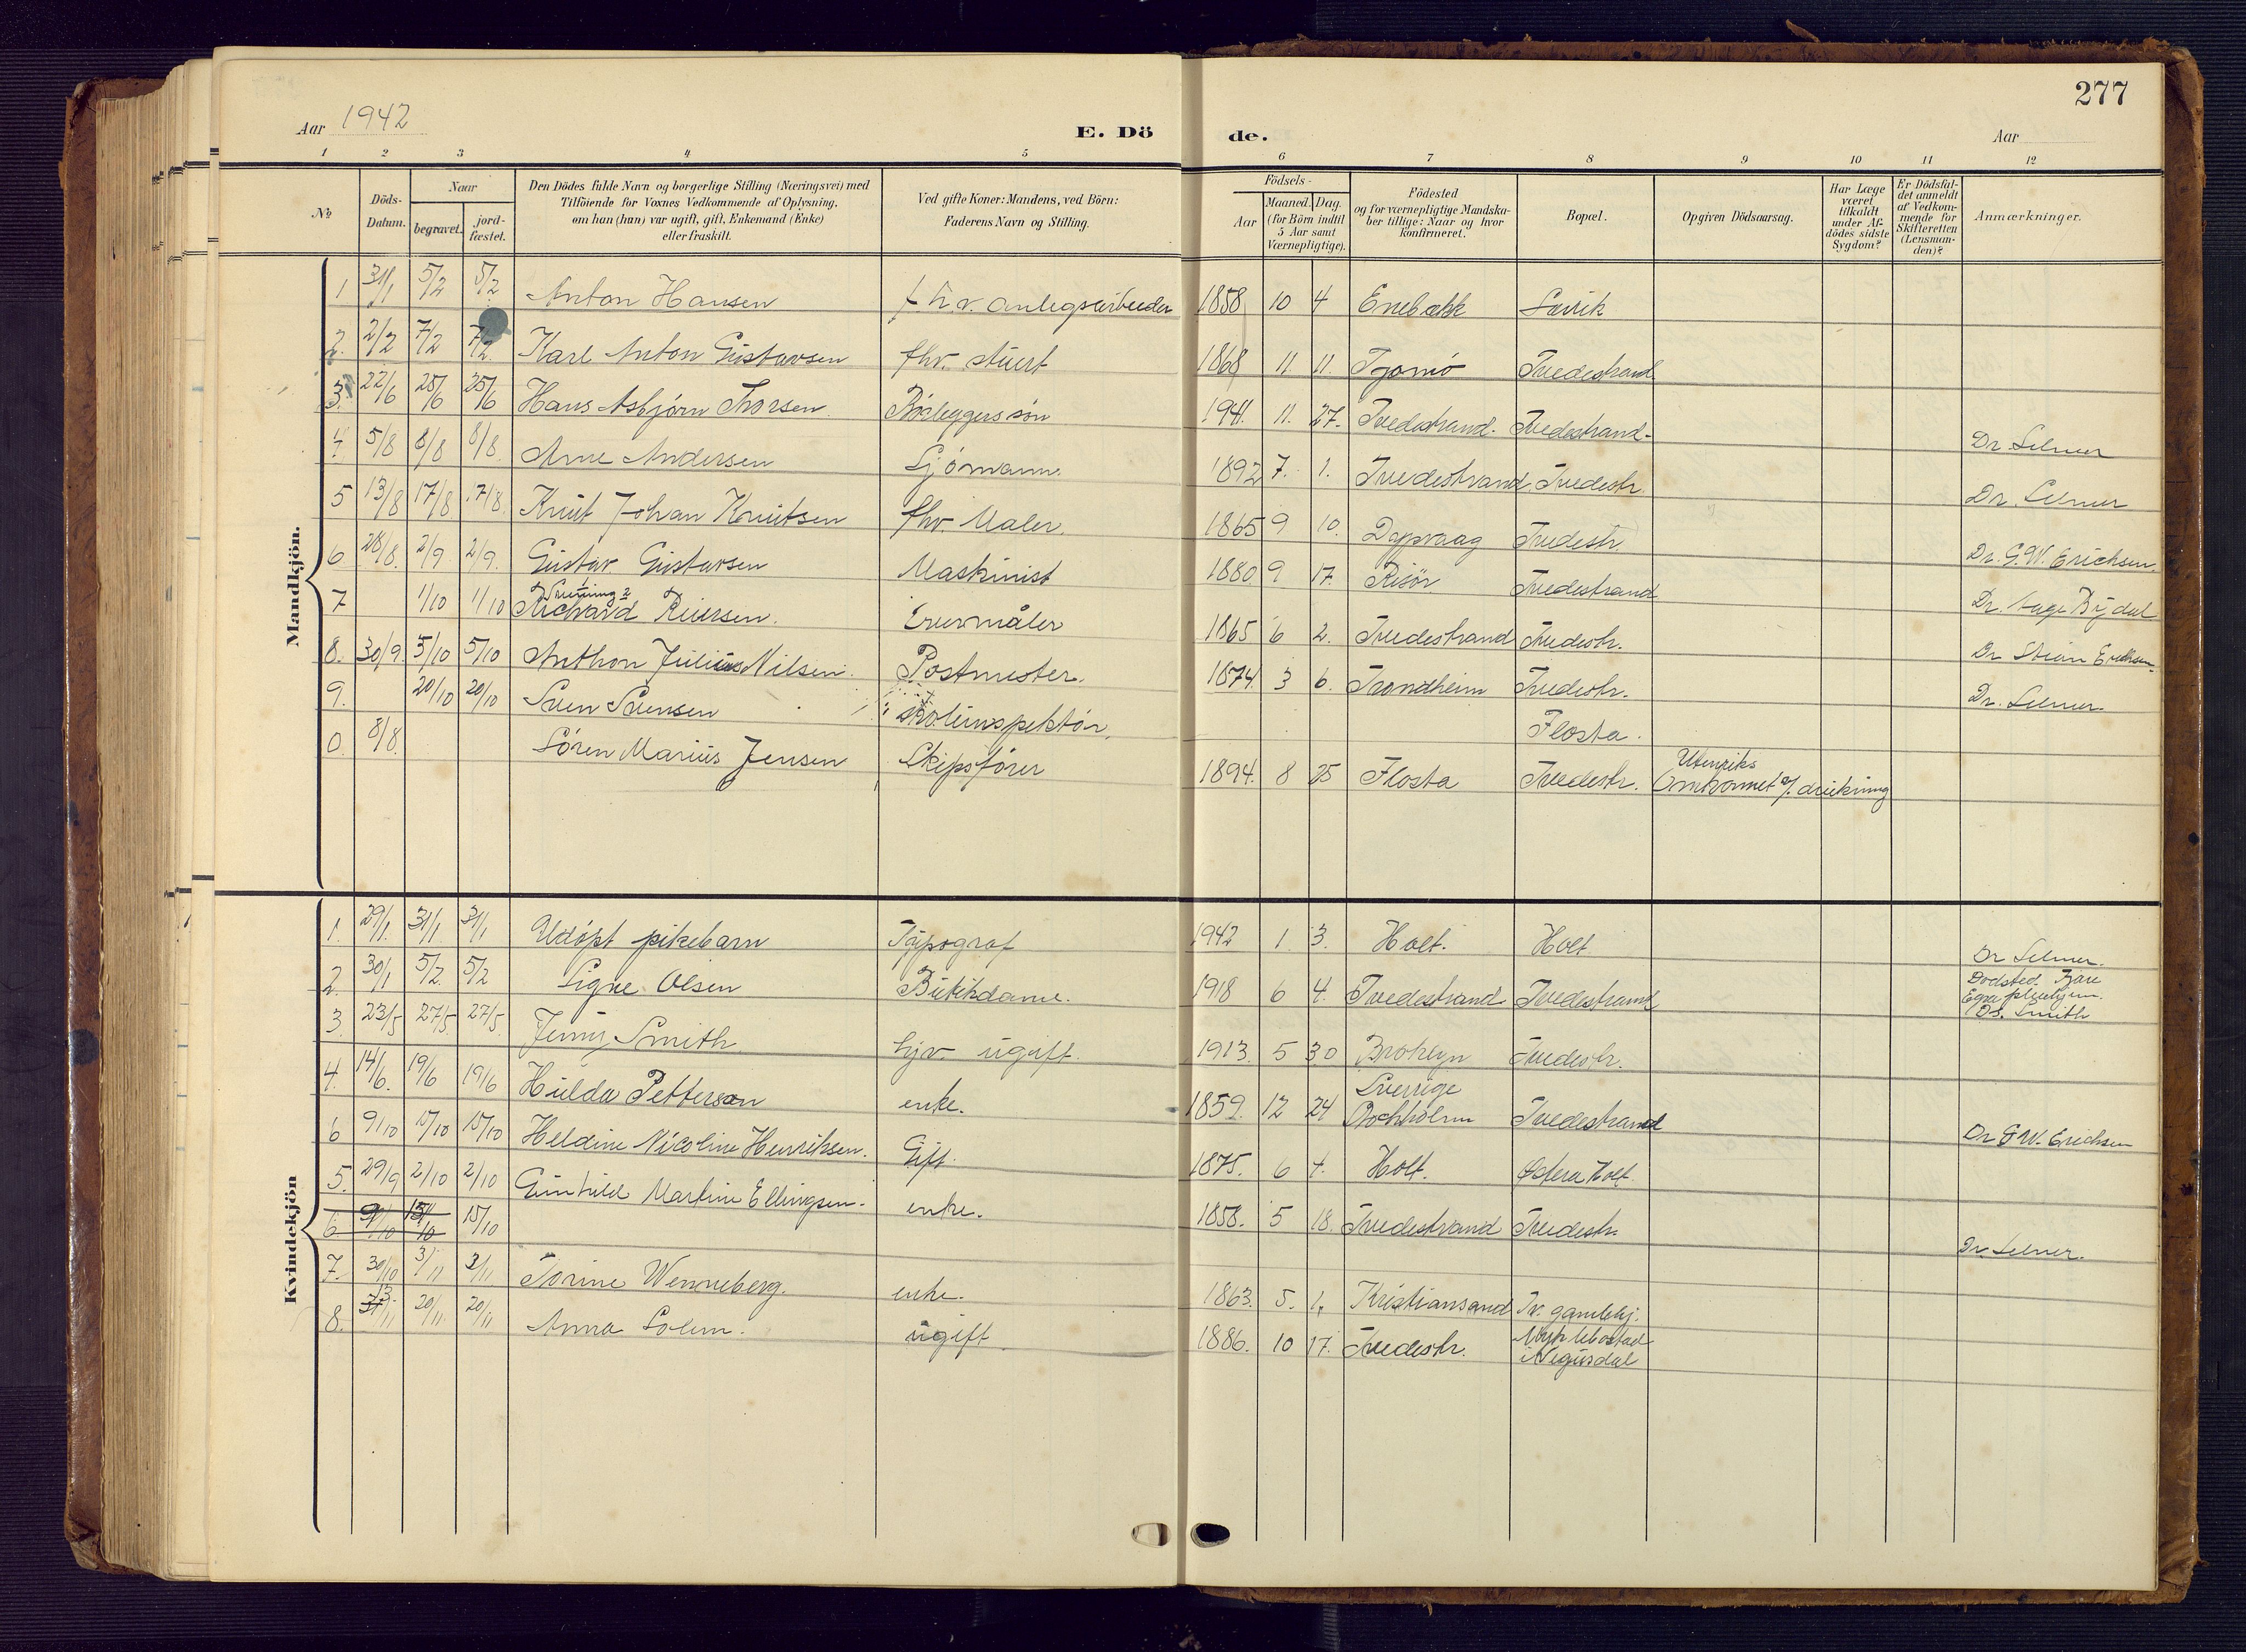 277
Aar 1942
E. Dö de.
Aar
1 2 3 4 5 6 7 8 9 10 11 12
№
Döds-Datum.
Naar
begravet.
jord-fæstet.
Den Dödes fulde Navn og borgerlige Stilling (Næringsvei) med
Tilföiende for Voxnes Vedkommende af Oplysning,
om han (hun) var ugift, gift, Enkemand (Enke)
eller fraskilt.
Ved gifte Koner: Mandens, ved Börn:
Faderens Navn og Stilling.
Födsels-
Aar
Maaned. Dag.
(for Börn indtil
5 Aar samt
Værnepligtige).
Födested
og for værnepligtige Mandska-
ber tillige: Naar og hvor
konfirmeret.
Bopæl.
Opgiven Dödsaarsag.
Har Læge
været
tilkaldt
under Af-
dödes sidste
Sygdom?
Er Dödsfal-
det anmeldt
af Vedkom-
mende for
Skifteretten
(Lensman-
den)?
Anmærkninger.
Mandkjön.
1 31/1 5/2 5/2 Anton Hansen f.h.v. anlegsarbeider 1858 10 4 Enebakk
2. 2/2 7/2 7/2. Karl Anton Gustavsen fhv. stuert 1868 11. 11. Tjømø Tvedestrand
3. 22/6 25/6 25/6 Hans Asbjørn Thorsen. Rørleggers søn 1941. 11. 27. Tvedestrand. Tvedestrand. Dr. Selmer
4 5/8 8/8 8/8. Arne Andersen Sjømann. 1892 7. 1. Tvedestrand. Tvedestr. Dr. Selmer
5 13/8 17/8 17/8 Knut Johan Knutsen fhv. Maler. 1865 9 10. Dypvaag Tvedestr. Dr. G.W. Erichsen.
6 28/8. 2/9. 2/9. Gustav Gustavsen Maskinist 1880. 9 17. Risör Tvedestrand Dr. Aage Bydal
7 1/10 1/10 Richard Reiersen. 1865 6 2. Tvedestrand Tvedestr. Dr. Stian Erichsen.
8. 30/9 5/10 5/10 Anthon Julius Nilsen. Postmester. 1874. 3 6. Trondheim Tvedestr. Dr. Selmer.
9. 20/10 20/10 Sven Svensen skoleinspektør. Flosta.
0. 8/8. Søren Marius Jensen Skipsfører 1894. 8 25 Flosta Tvedestr. Utenriks
Omkommet v/. drukning
Kvindekjön
1. 29/1. 31/1. 31/1 Udøpt pikebarn Typograf 1942 1. 3. Holt. Holt. Dr Selmer.
2. 30/1 5/2. 5/2 Signe Olsen Butikdame. 1918 6 4. Tvedestrand Tvedestrand Dødsted.
3. 23/5 27/5 27/5 Jenny Smith. ugift. 1913. 5 30 Broklyn Tvedestr. Dr. Smith
4. 14/6. 19/6 19/6 Hulda Petterson enke. 1859. 12 24 Sverrige
Stockholm Tvedestrand Dr G.W. Erichsen
6 9/10 15/10 15/10 Heldine Nicoline Henriksen. Gift. 1875. 6 4. Holt. Østerå Holt.
5. 29/9 2/10 2/10 Gunhild Martine Ellingsen. enke. 1858. 5 18. Tvedestrand Tvedestr. Dr. Selmer.
6 9/10 15/10 15/10
7. 30/10 3/11 3/11 Torine Wenneberg. enke. 1863. 5. 1. Kristiansand Tv. gamlehj.
8. 13/11 20/11 20/11 Anna Solem. ugift 1886. 10 17. Tvedestr. Myklebostad
i Vegusdal